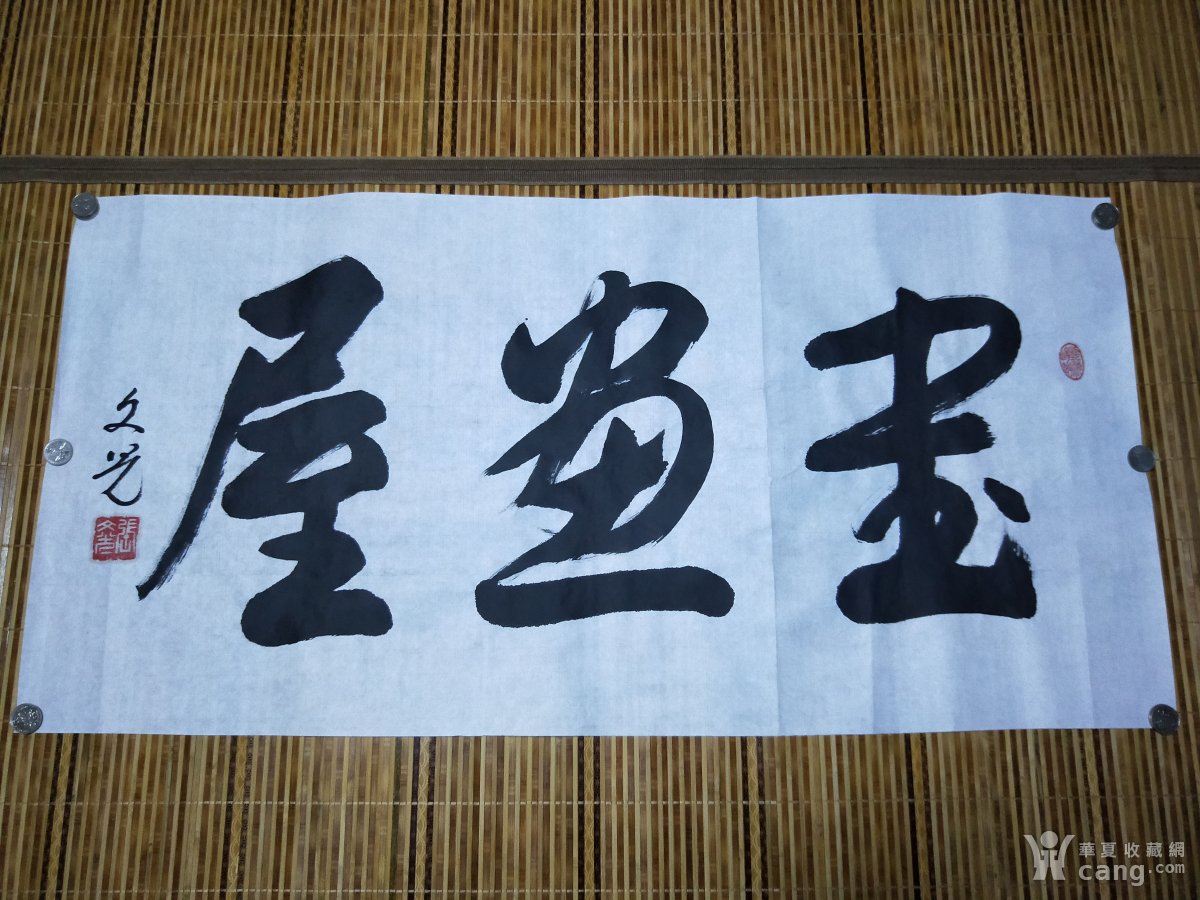 書畫屋
文光
華夏收藏網
cang.com